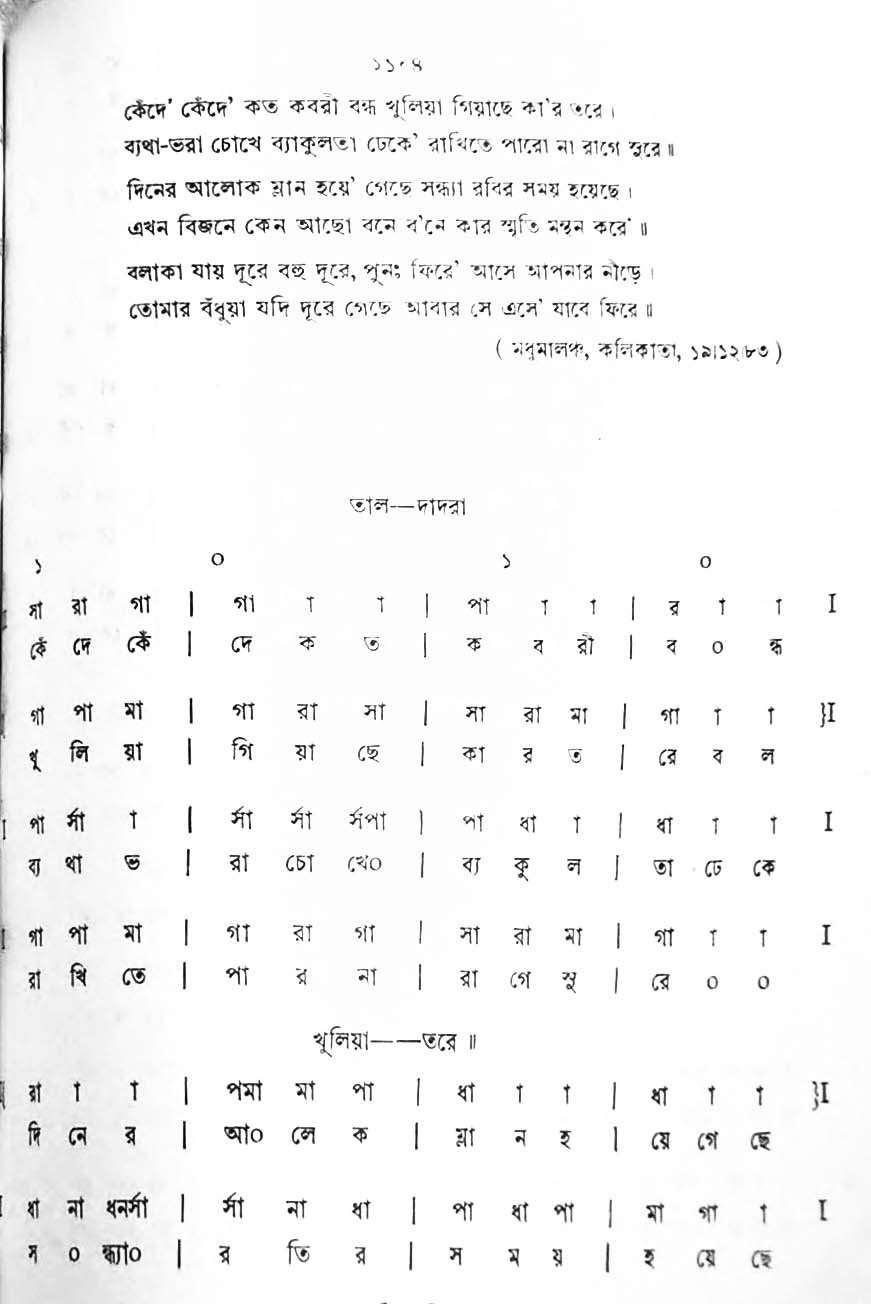 ১১০৪
কেঁদে' কেঁদে' কত কবরী বন্ধ খুলিয়া গিয়াছে কা'র তরে।
ব্যথা-ভরা চোখে ব্যাকুলতা ঢেকে' রাখিতে পারো না রাগে সুরে॥
দিনের আলোক ম্লান হয়ে' গেছে সন্ধ্যা রবির সময় হয়েছে।
এখন বিজনে কেন আছো বনে ব'নে কার স্মৃতি মন্থন করে'॥
বলাকা যায় দূরে বহু দূরে, পুনঃ ফিরে' আসে আপনার নীড়ে।
তোমার বঁধুয়া যদি দূরে গেছে আবার সে এসে' যাবে ফিরে॥
( মধুমালঞ্চ, কলিকাতা, ১৯।১২।৮৩ )
তাল—দাদরা
১ ০ ১ ০
সা রা গা | গা া া | পা া া | র া া I
কেঁ দে কেঁ | দে ক ত | ক ব রী | ব ০ ন্ধ
গা পা মা | গা রা সা | সা রা মা | গা া া }I
খু লি য়া | গি য়া ছে | কা র ত | রে ব ল
পা র্সা া | র্সা র্সা র্সপা | পা ধা া | ধা া া I
ব্য থা ভ | রা চো খে০ | ব্য কু ল | তা ঢে কে
গা পা মা | গা রা গা | সা রা মা | গা া া I
রা খি তে | পা র না | রা গে সু | রে ০ ০
খুলিয়া——তরে॥
রা া া | পমা মা পা | ধা া া | ধা া া }I
দি নে র | আ০ লে ক | ম্লা ন হ | য়ে গে ছে
ধা না ধনর্সা | র্সা না ধা | পা ধা পা | মা গা া I
স ০ ন্ধ্যা০ | র তি র | স ম য় | হ য়ে ছে